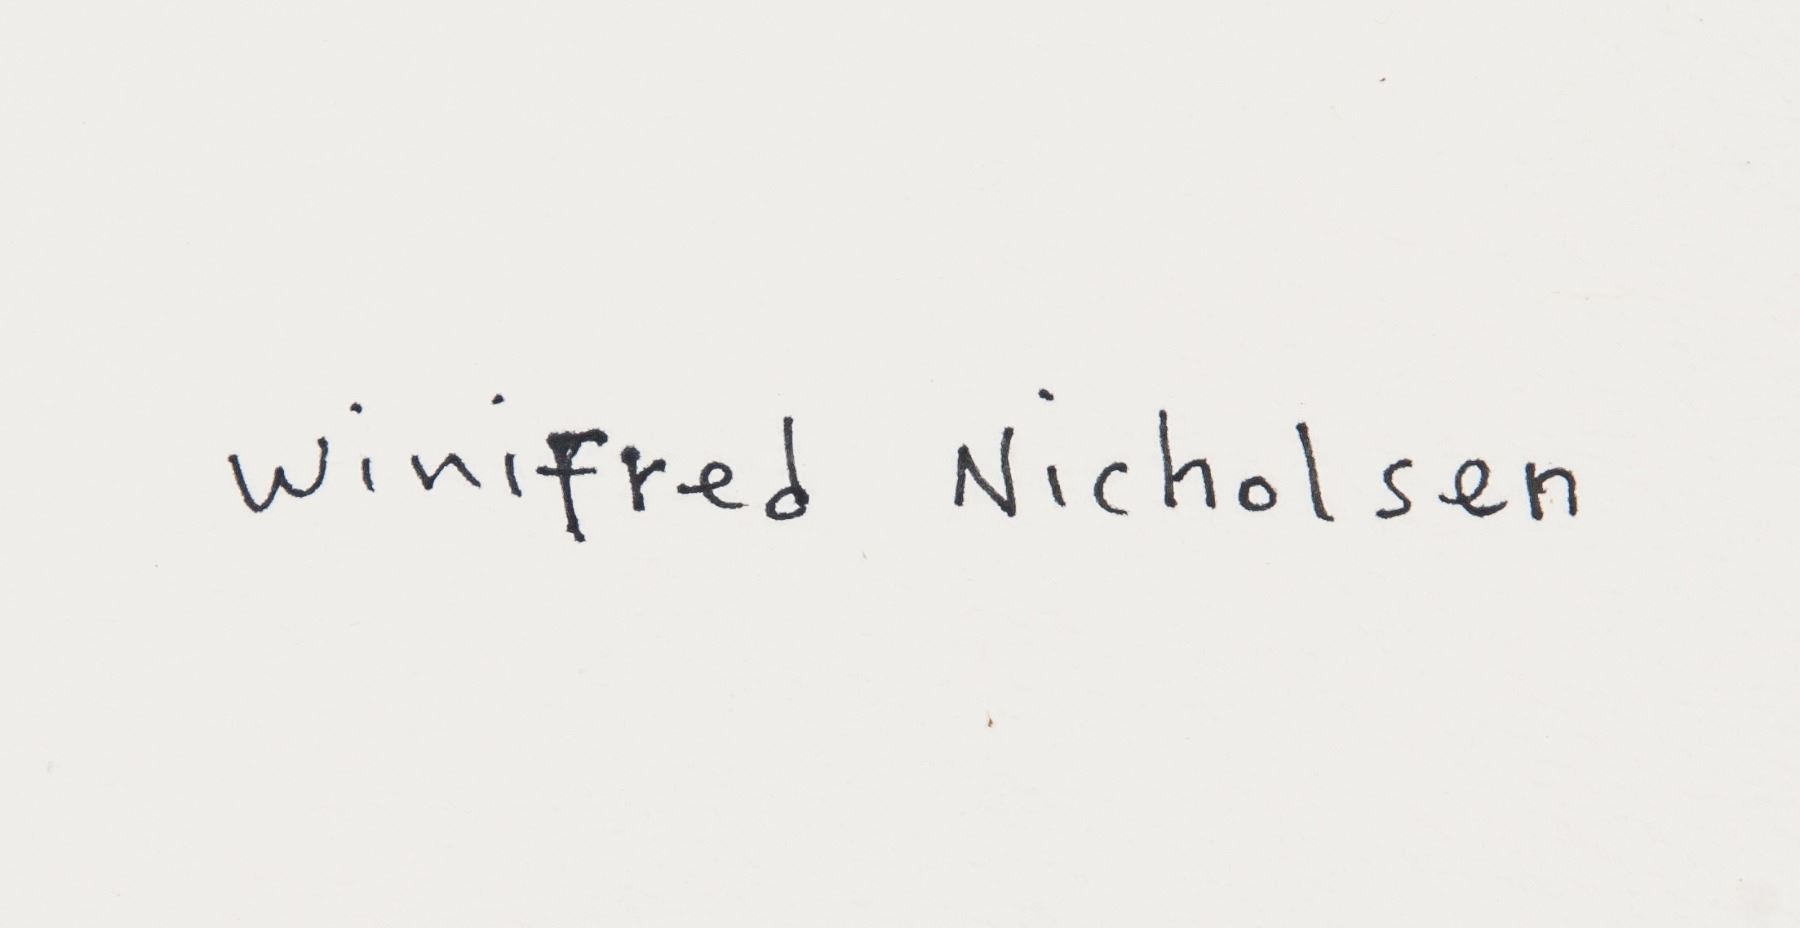 Winifred Nicholsen